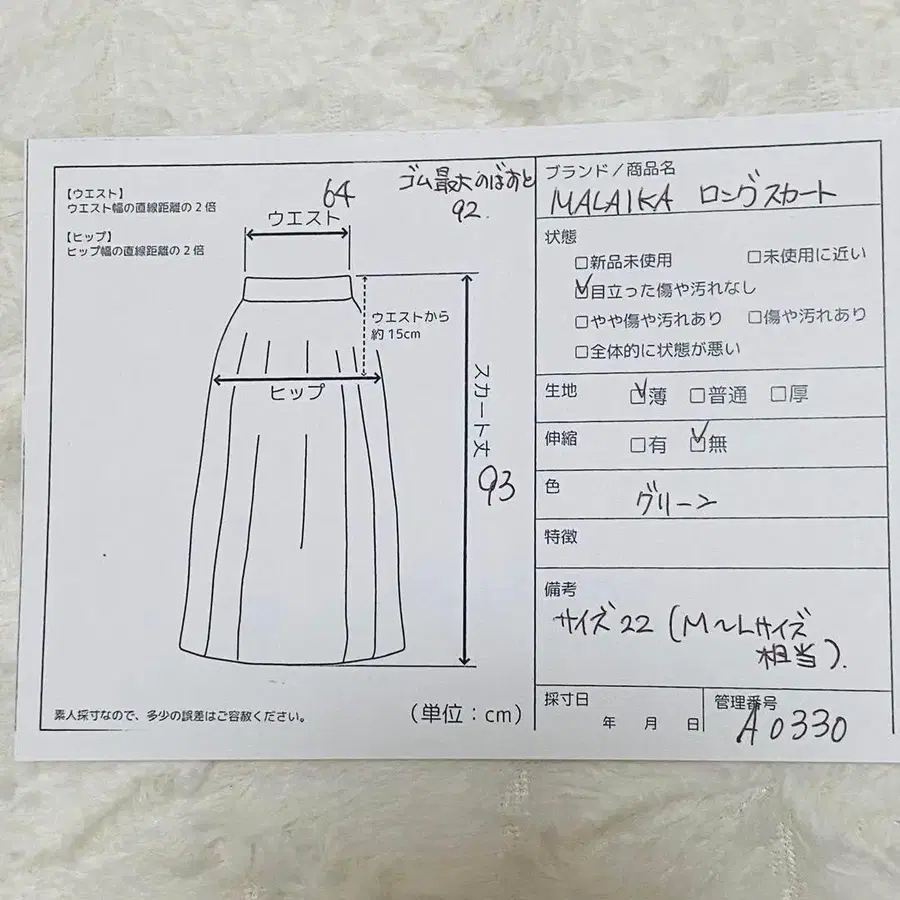 【ウエスト】
ウエスト幅の直線距離の2倍
【ヒップ】
ヒップ幅の直線距離の2倍
64
ゴム最大のばすと
92.
ウエスト
ウエストから
約15cm
ヒップ
スカート丈
93
素人採寸なので、多少の誤差はご容赦ください。
(単位:cm)
ブランド/商品名
MALAIKA ロングスカート
状態
□新品未使用 □未使用に近い
☑目立った傷や汚れなし
□やや傷や汚れあり □傷や汚れあり
□全体的に状態が悪い
生地 ☑薄 □普通 □厚
伸縮 □有 ☑無
色 グリーン
特徴
備考
サイズ22(M~Lサイズ
相当).
採寸日
年 月 日
管理番号
A0330